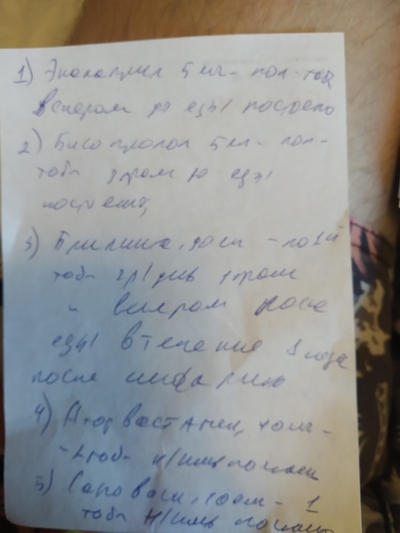 1) Эналаприл 5 мг - пол-таб
вечером до еды постоянно
2) Бисопролол 5 мг - пол-
таб утром до еды
постоянно
3) Брилинта, 90 мг - по 1й
таб 2р/день утром
и вечером после
еды в течение 1 года
после инфаркта
4) Аторвастатин, 40 мг -
- 1 таб н/ночь
5) 1
таб н/ночь